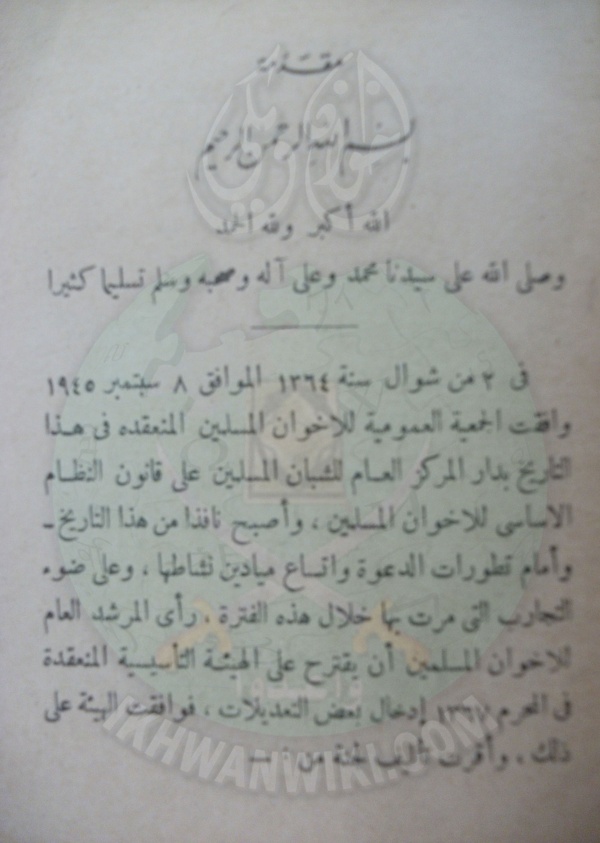 مقدمة
بسم الله الرحمن الرحيم
الله أكبر ولله الحمد
وصلى الله على سيدنا محمد وعلى آله وصحبه وسلم تسليما كثيرا
فى ٢ من شوال سنة ١٣٦٤ الموافق ٨ سبتمبر ١٩٤٥
وافقت الجمعية العمومية للاخوان المسلمين المنعقده فى هـذا
التاريخ بدار المركز العـام للشبان المسلمين على قانون النظـام
الاساسى للاخوان المسلمين ، وأصبح نافذا من هذا التاريخ ـ
وأمام تطورات الدعوة واتساع ميادين نشاطها ، وعلى ضوء
التجارب التى مرت بها خلال هذه الفترة . رأى المرشد العام
للاخوان المسلمين أن يقترح على الهيئـة التأسيسية المنعقدة
فى المحرم ١٣٦٧ إدخال بعض التعديلات ، فوافقت الهيئة على
ذلك . وأقرت تأليف لجنة من : —
وأعدوا
IKHWANWIKI.COM